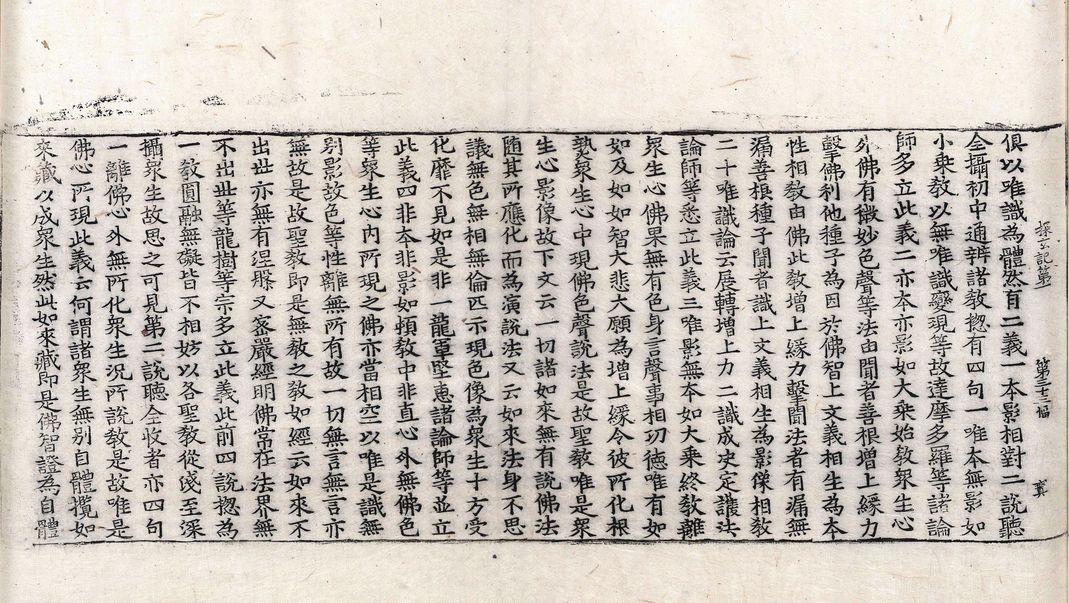 探玄記第
俱以唯識為體然有二義一本影相對二說聽
全攝初中通辨諸教揔有四句一唯本無影如
小乘教以無唯識變現等故達摩多羅等諸論
師多立此義二亦本亦影如大乘始教衆生心
外佛有微妙色聲等法由聞者善根增上緣力
擊佛利他種子為因於佛智上文義相生為本
性相教由佛此教增上緣力擊聞法者有漏無
漏善根種子聞者識上文義相生為影像相教
二十唯識論云展轉增上力二識成决定護法
論師等悉立此義三唯影無本如大乘終教離
衆生心佛果無有色身言聲事相功德唯有如
如及如如智大悲大願為增上緣令彼所化根
熟衆生心中現佛色聲說法是故聖教唯是衆
生心影像故下文云一切諸如來無有說佛法
随其所應化而為演說法又云如來法身不思
議無色無相無倫匹示現色像為衆生十方受
化靡不見如是非一龍軍堅恵諸論師等並立
此義四非本非影如頓教中非直心外無佛色
等衆生心內所現之佛亦當相空以唯是識無
別影故色等性離無所有故一切無言無言亦
無故是故聖教即是無教之教如經云如來不
出世亦無有涅槃又密嚴經明佛常在法界無
不出世等龍樹等宗多立此義此前四說揔為
一教圓融無礙皆不相妨以各聖教從淺至深
攝衆生故思之可見第二說聽全收者亦四句
一離佛心外無所化衆生況所說教是故唯是
佛心所現此義云何謂諸衆生無別自體攬如
來藏以成衆生然此如來藏即是佛智證為自體